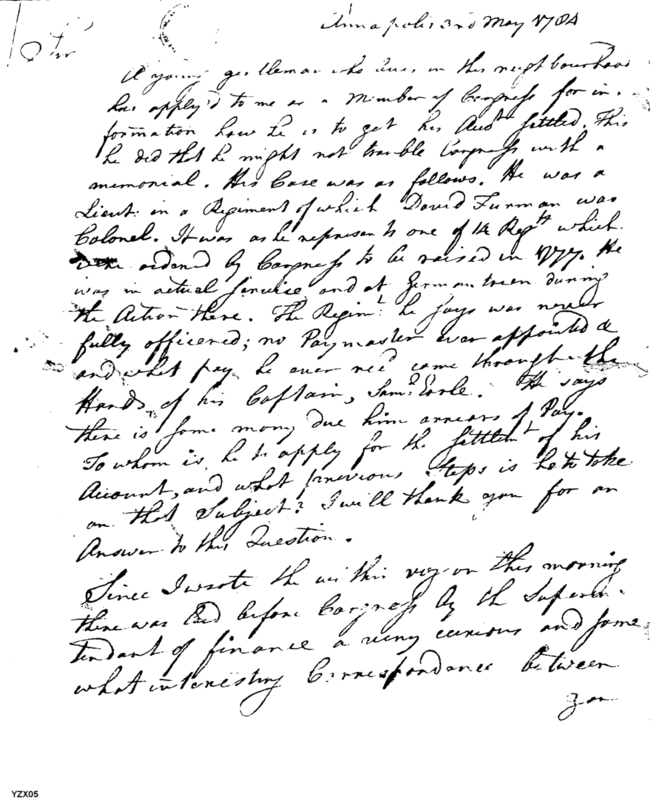 Annapolis 3rd May 1784
Sir
A young gentleman who lives in this neighbourhood
has apply'd to me as a Member of Congress for in-
formation how he is to get his Acct settled. This
he did that he might not trouble Congress with a
memorial. His Case was as follows. He was a
Lieut: in a Regiment of which David Furman was
Colonel. It was as he represents one of 16 Regts which
were ordered by Congress to be raised in 1777. He
was in actual service and at German town during
the Action there. The Regimt he says was never
fully officered; no Paymaster ever appointed &
and what pay he ever recd came through the
Hands of his Captain, Saml Earle. He says
there is some mony due him arrears of Pay.
To whom is he to apply for the settlemt of his
Account, and what previous steps is he to take
on that Subject? I will thank you for an
Answer to this Question.
Since I wrote the within viz. on this morning
there was laid before Congress by the Superin-
tendant of finance a very curious and some
what interesting Correspondance between
you
YZX05